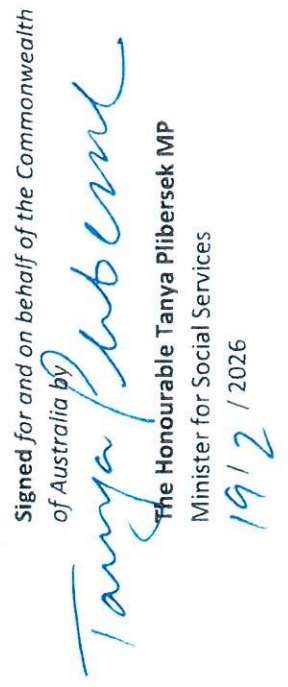 Signed for and on behalf of the Commonwealth
of Australia by
Tanya Plibersek
The Honourable Tanya Plibersek MP
Minister for Social Services
19/2 / 2026